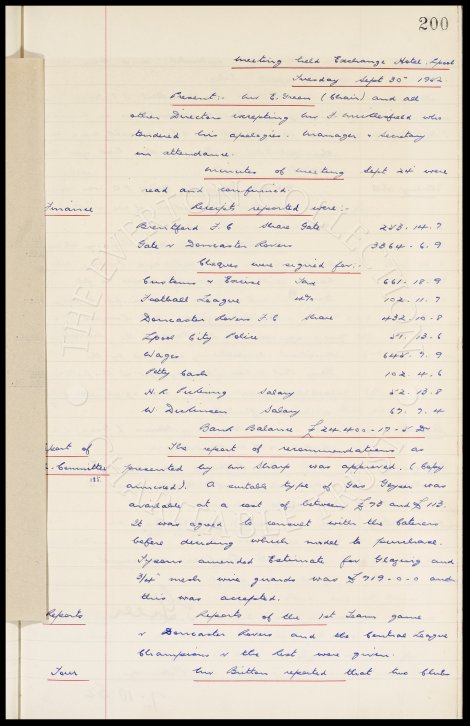 200
Meeting held Exchange Hotel, Lpool
Tuesday Sept 30th 1952
Present:- Mr E. Green (Chair) and all
other Directors excepting Mr who
tendered his apologies. Manager & Secretary
in attendance.
Minutes of meeting Sept 24 were
read and confirmed
Finance Receipts reported were:-
Brentford F.C Share Gate 253. 14. 7
Gate v Doncaster Rovers 3364. 6. 9
Cheques were signed for:-
Customs & Excise Tax 661. 18. 9
Football League 4% 102. 11. 7
Doncaster Rovers F.C Share 432. 10. 8
Lpool City Police 51. 13. 6
Wages 645. 9. 9
Petty Cash 102. 4. 6
H. R. Pickering Salary 52. 13. 8
W Dickinson Salary 67. 7. 4
Bank Balance £24400-17-5
eport of The report of recommendations as
Committee presented by Mr Sharp was approved. (Copy
annexed). A suitable type of Gas Geyser was
available at a cost of between £73 and £113.
It was agreed to consult with the Caterers
before deciding which model to purchase.
Tysons amended Estimate for Glazing and
3/4" mesh wire guards was £719-0-0 and
this was accepted.
Reports Reports of the 1st Team game
v Doncaster Rovers and the Central League
Champions v the Rest were given.
Tour Mr Britton reported that two Clubs
THE EVERTON COLLECTION